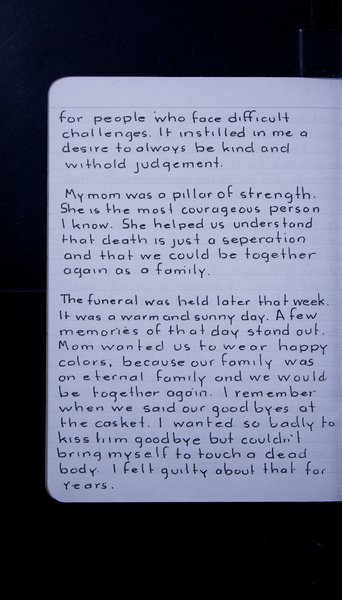 for people who face difficult
challenges. It instilled in me a
desire to always be kind and
withold judgement.
My mom was a pillar of strength.
She is the most courageous person
I know. She helped us understand
that death is just a seperation
and that we could be together
again as a family.
The funeral was held later that week.
It was a warm and sunny day. A few
memories of that day stand out.
Mom wanted us to wear happy
colors, because our family was
an eternal family and we would
be together again. I remember
when we said our good byes at
the casket. I wanted so badly to
kiss him goodbye but couldn't
bring myself to touch a dead
body. I felt guilty about that for
years.